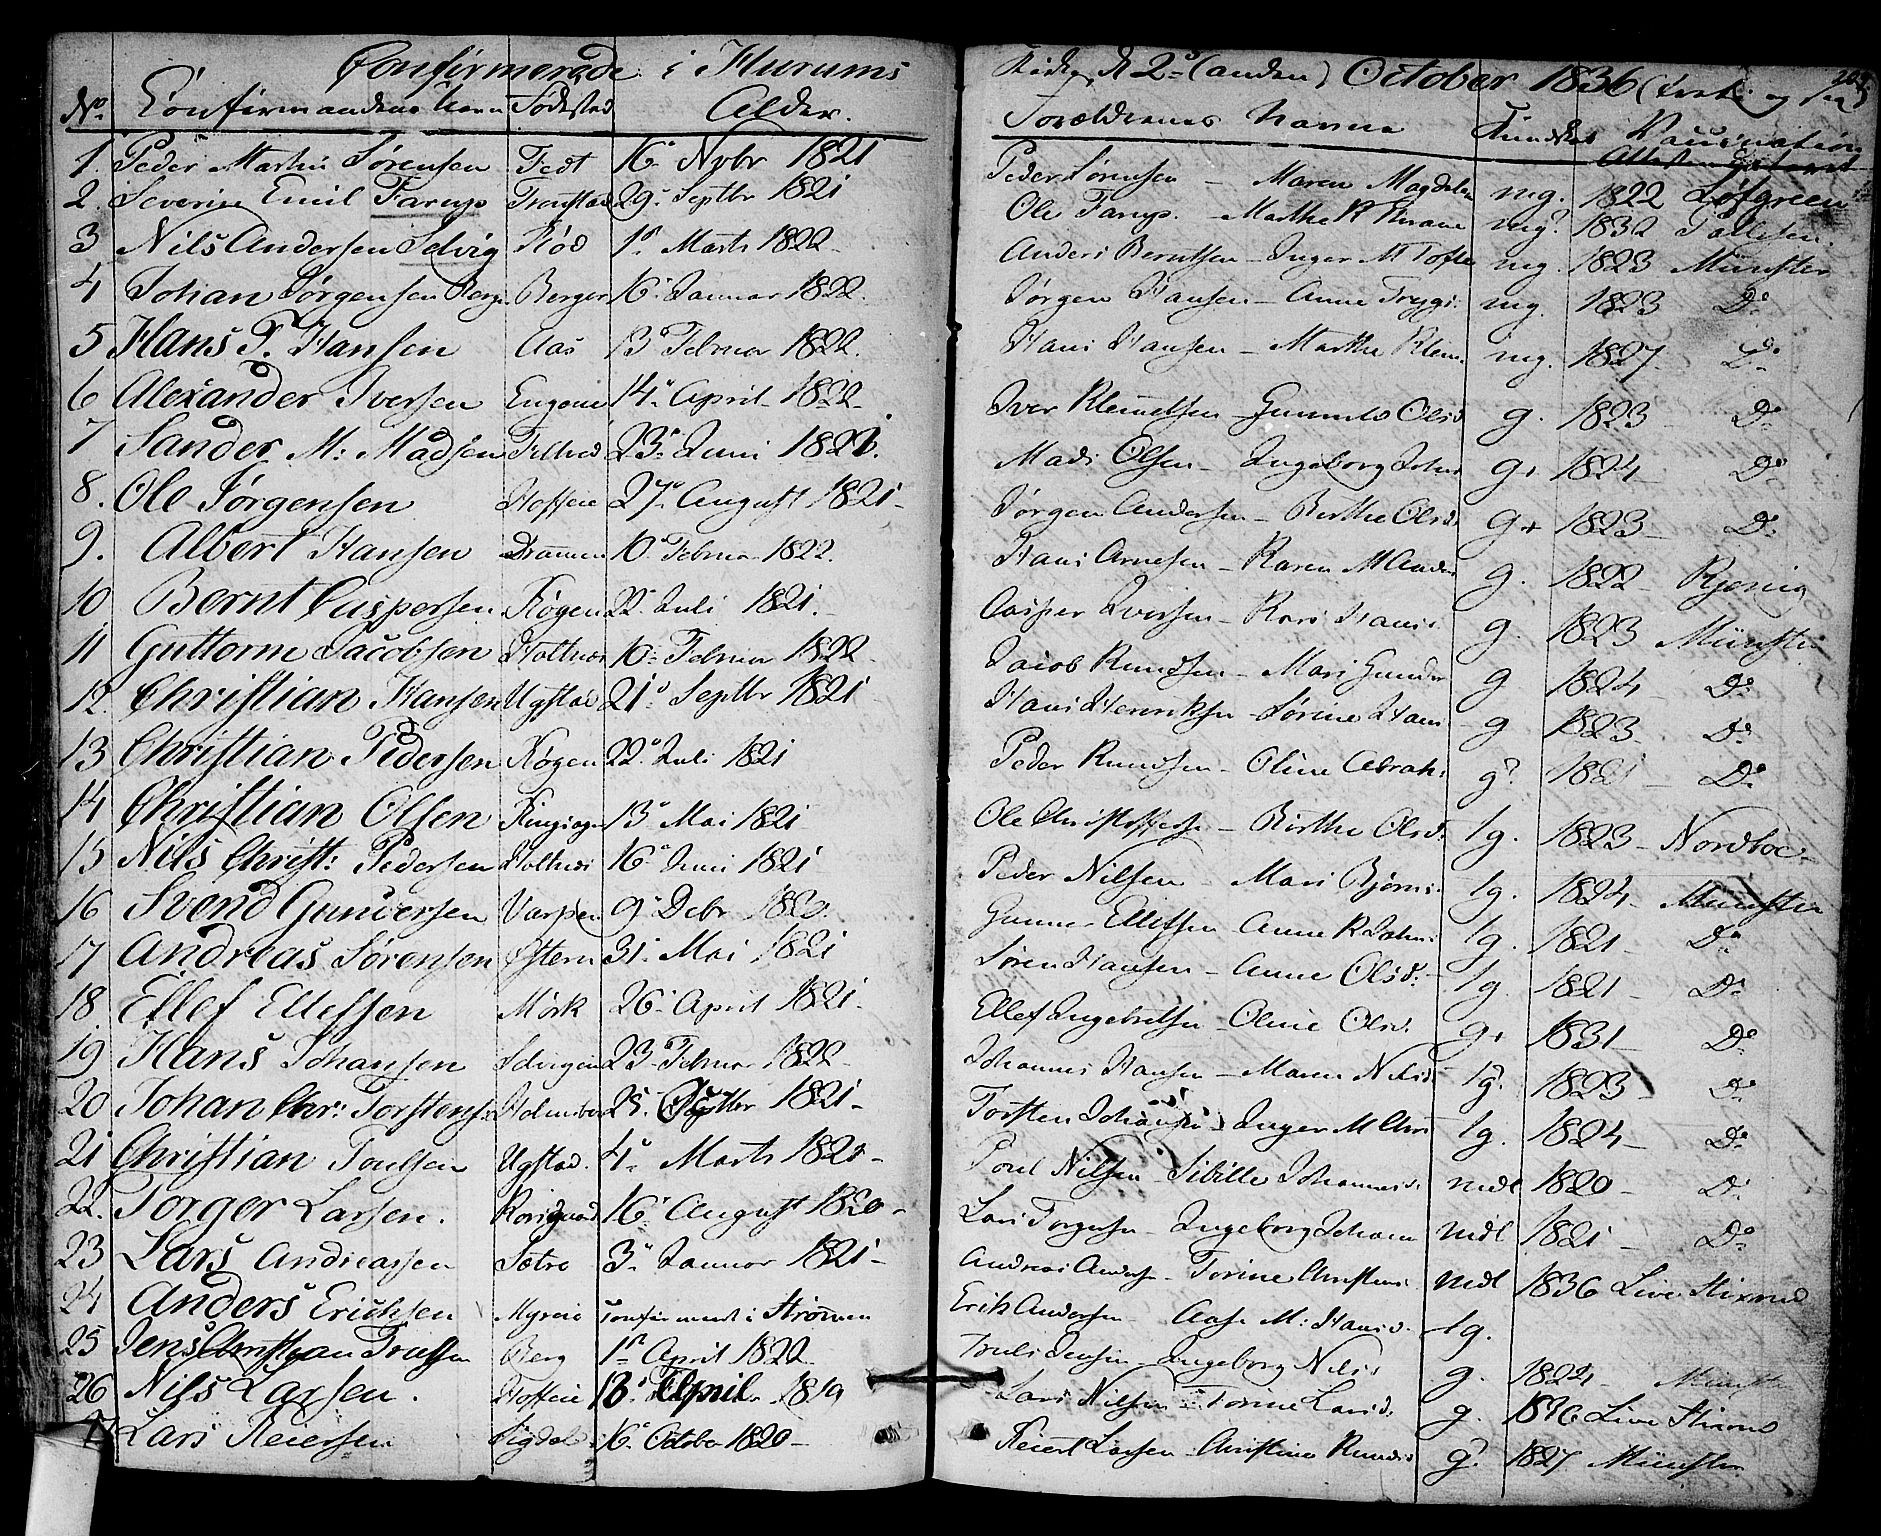 Confirmerede i Hurums Kirke d 2den (anden) October 1836
No Confirmandens Navn Fødested Alder. Forældrenes Navne Kundskab Vaccination
1. Peder Martin Sørensen Fedt 16de Novbr 1821 Peder Sørensen - Maren Magdalen mg. 1822 Løfgreen
2. Severin Emil Farup 29. Septbr 1821 Ole Farup. - Marthe mg? 1832 Paulsen.
3 Nils Andersen Selvig Rød 1st Marts 1822. Anders Berntsen - Inger M Tofte mg. 1823 Münster
4 Johan Jørgensen Berg Berger 16. Januar 1822. Jørgen Hansen - Anne Trygs. mg. 1823 Do
5 Hans P. Hansen Aas 13. Februar 1822. Hans Hansen - Marthe Klem. mg. 1827. Do
6 Alexander Iversen 14. April 1822. Iver Klemetsen - Gunnild Olsd g. 1823 Do
7 Sander M: Madsen 23. Juni 1821. Mads Olsen - Ingeborg Johns g+ 1824 Do
8. Ole Jørgensen 27. August 1821 - Jørgen Andersen - Birthe Olsd g+ 1823 Do
9. Albert Hansen Drammen 10. Februar 1822. Hans Arnesen - Karen M Anders g. 1822
10 Bernt Caspersen 22. Juli 1821. Casper Iversen - Kari Hans. g. 1823 Münster
11 Guttorm Jacobsen Holtnæs 10. Februar 1822 Jacob Knudsen - Mari Gunder g 1824 Do
12. Christian Hansen Ugstad 21. Septbr 1821 Hans Henriksen - Sørine Hans g 1823 Do
13 Christian Pedersen 22. Juli 1821 Peder Knudsen - Oline Abrah. g? 1821 Do
14 Christian Olsen 13. Mai 1821 Ole Christoffersen - Birthe Olsd. 1g. 1823 - Nordboe
15 Nils Christ: Pedersen Holtnæs 16. Juni 1821 Peder Nilsen - Mari Bjørns. 1g. 1824 Münster
16 Svend Gundersen Varpen 9. Debr 1820. Gunner Ellefsen Anne K Johns. 1g. 1821 - Do
17 Andreas Sørensen Østern 31. Mai 1821 Søren Hansen - Anne Olsd. 1g 1821 - Do
18 Ellef Ellefsen Mørk 26. April 1821 Ellef Ingebretsen - Oline Olsd. g+ 1831 - Do
19 Hans Johansen 23. Februar 1822 Johannes Hansen - Maren Nilsd. 1g. 1823 Do
20 Johan Chr: Torstens. Holmsbo 25. Septbr 1821 - Torsten Johansen - Inger M Chri 1g. 1824 - Do
21 Christian Poulsen Ugstad. 4. Marts 1820 - Poul Nilsen - Sibille Johannesd. mdl 1820 - Do
22. Torger Larsen. 16. August 1820 - Lars Torgersen - Ingeborg Johann mdl 1821 - Do
23 Lars Andreassen Sætre 3. Januar 1821 - Andreas Anders. - Torine Christens. mdl 1836 Live Stixrud
24 Anders Erichsen Myreie Confirmeret i Strømm Erik Andersen Aase M: Hansd. 1g.
25 Jens Christian Truelsen Berg 1st April 1822 Truls Jensen Ingeborg Nilsd g. 1824 - Münster
26 Nils Larsen. 13. April 1819 Lars Nilsen - Torine Larsd. g. 1836 Live Stixrud
27 Lars Reiersen Sigdal 16. October 1820 - Reiert Larsen - Christine Knudsd g? 1827 Münster